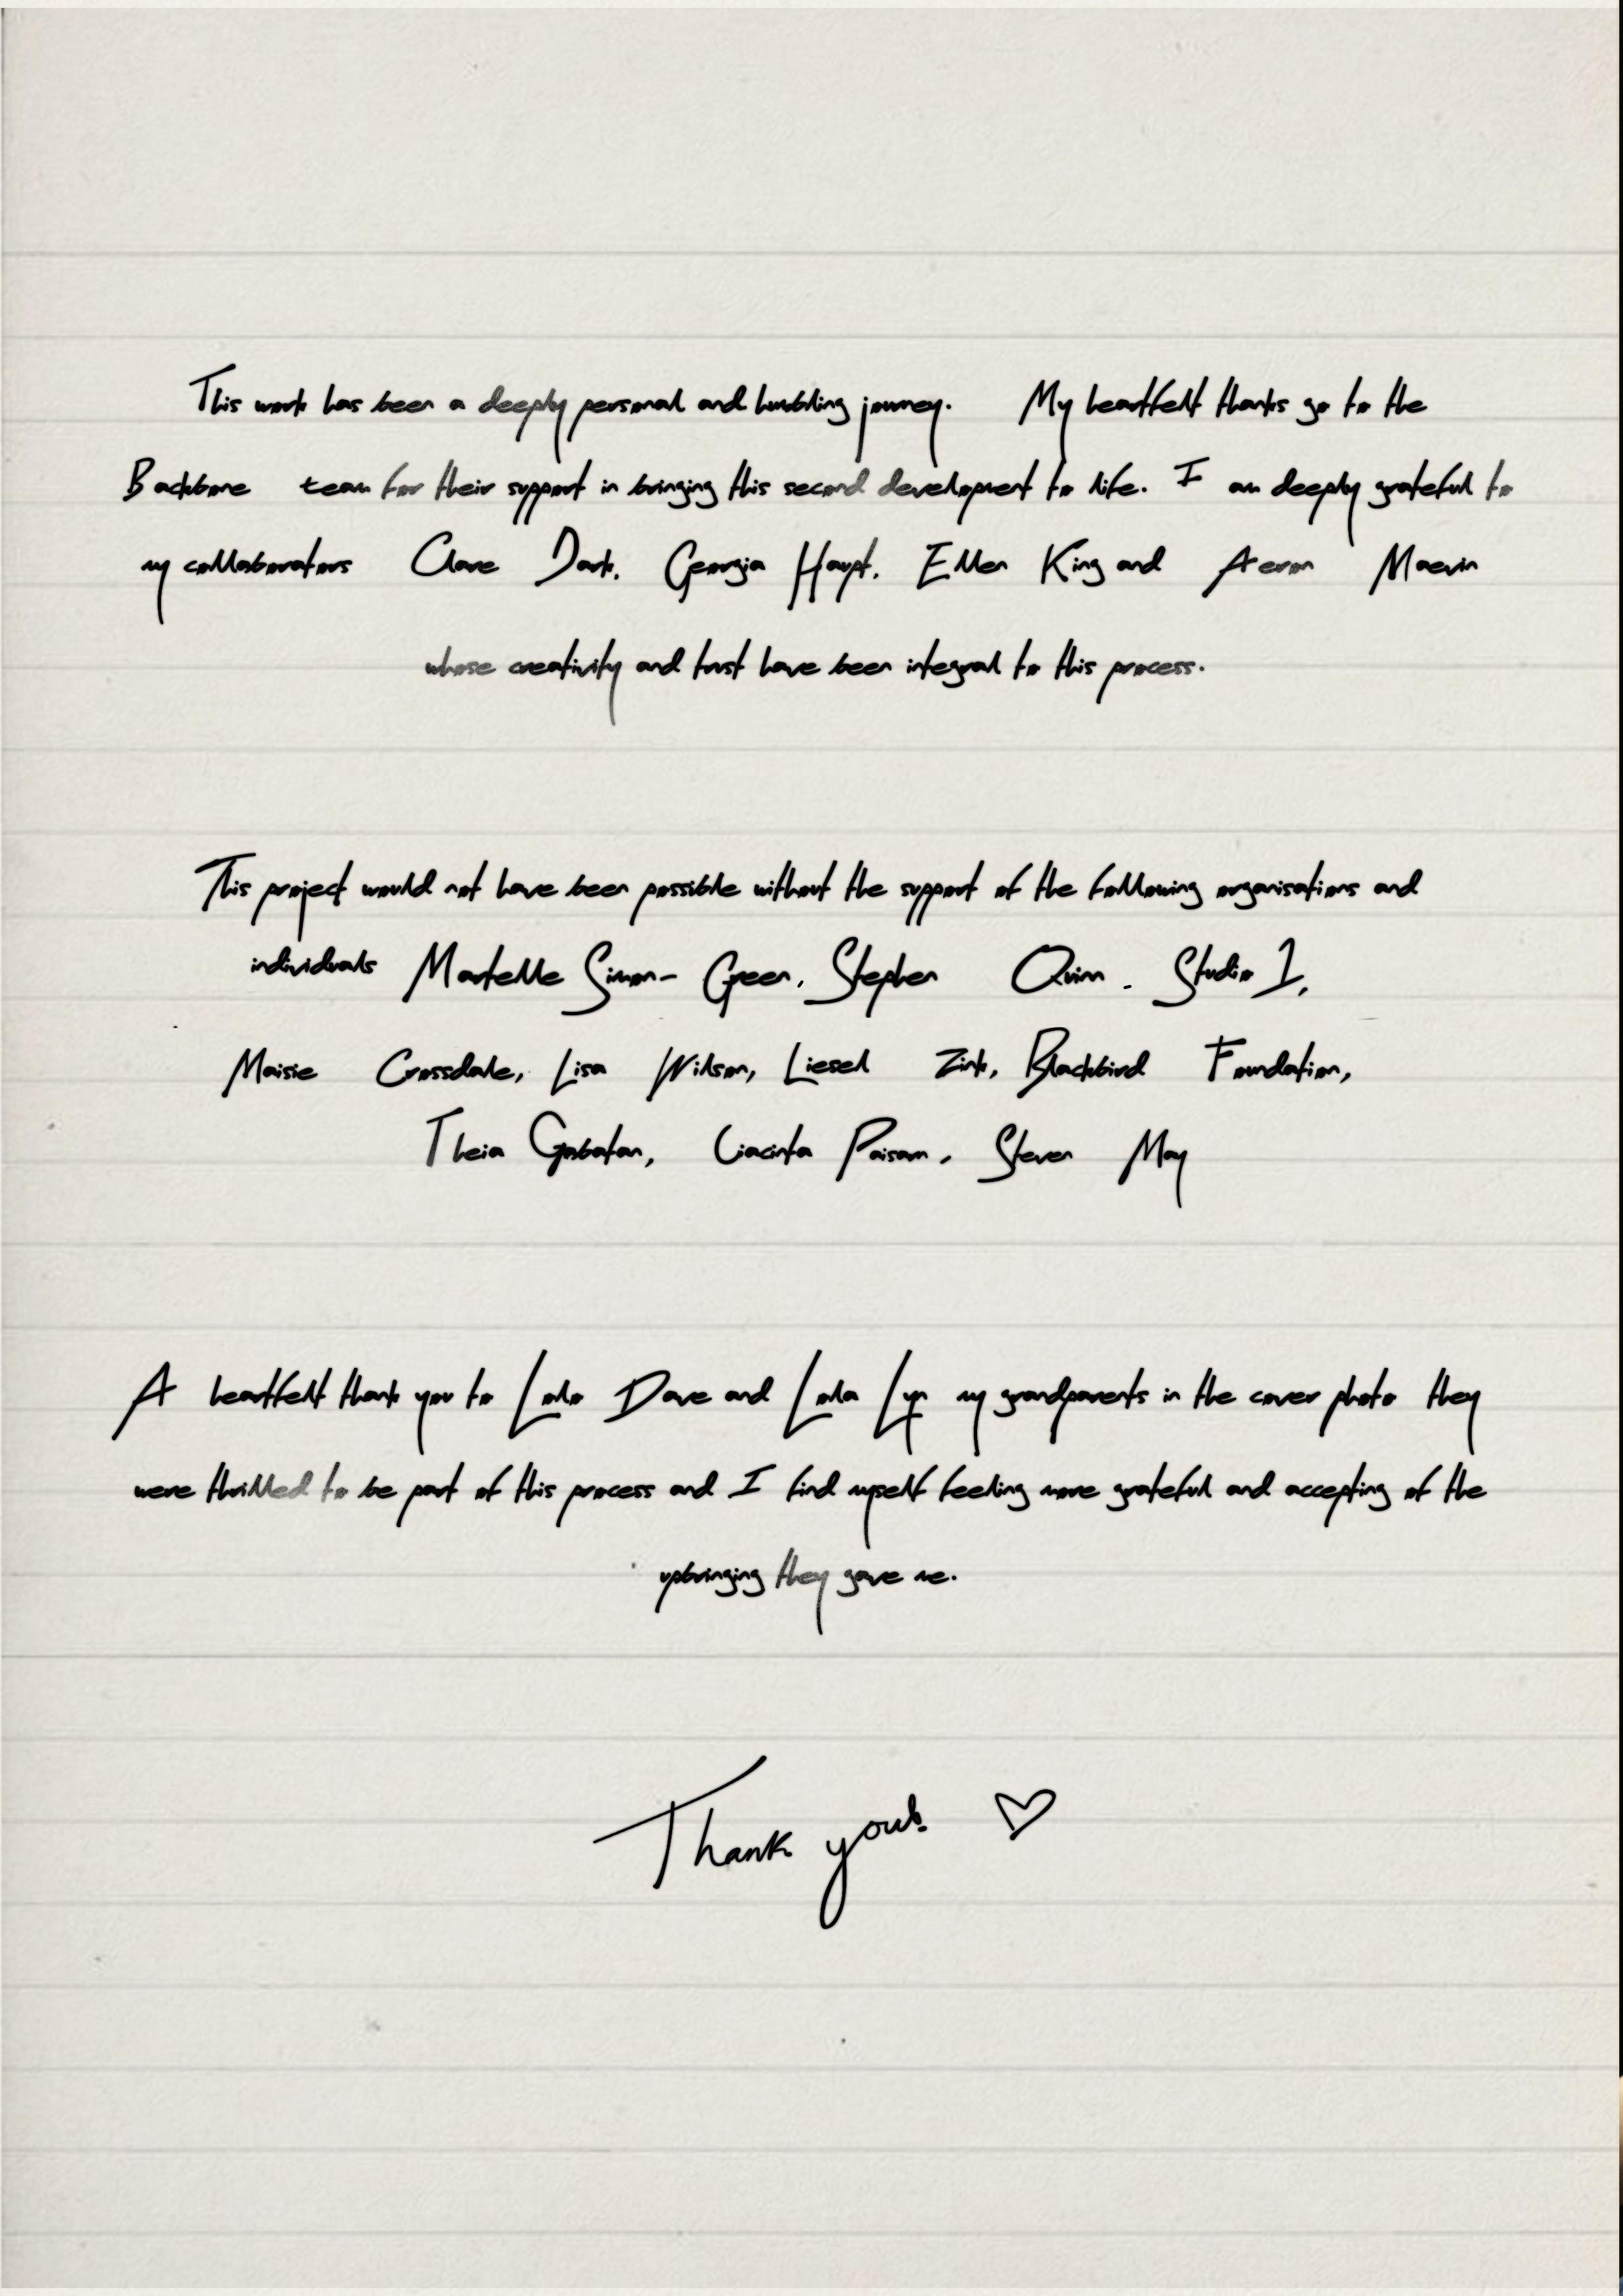 This work has been a deeply personal and humbling journey. My heartfelt thanks go to the
Backbone team for their support in bringing this second development to life. I am deeply grateful to
my collaborators Clare Dark, Georgia Haupt, Ellen King and Aeron Maevin
whose creativity and trust have been integral to this process.
This project would not have been possible without the support of the following organisations and
individuals Martelle Simon- Green, Stephen Quinn. Studio 1,
Maisie Crossdale, Lisa Wilson, Liesel Zink, Blackbird Foundation,
Theia Gabatan, Steven May
A heartfelt thank you to Lolo Dave and Lola Lyn my grandparents in the cover photo they
were thrilled to be part of this process and I find myself feeling more grateful and accepting of the
upbringing they gave me.
Thank you!